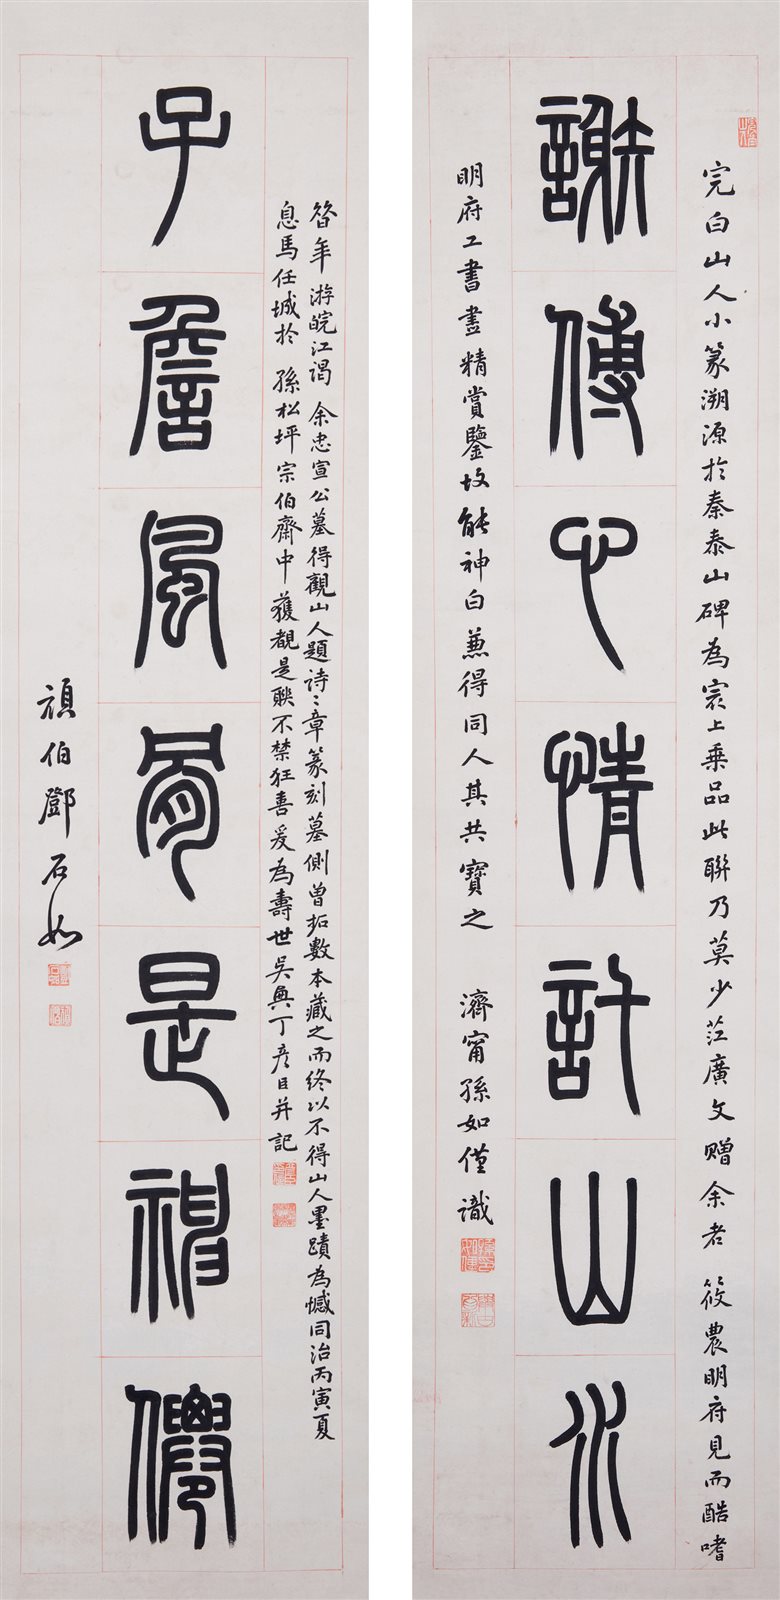 完白山人小篆溯源於秦泰山碑為冣上乗品此聯乃莫少茳廣文贈余者 筱農明府見而酷嗜
謝傅心情許山水
明府工書畫精賞鑒故能神白兼得同人其共寶之 濟甯孫如僅識
昝年游皖江謁 余忠宣公墓得觀山人題詩二章篆刻墓側曾拓數本藏之而終以不得山人墨蹟為憾同治丙寅夏
息馬任城於 孫松坪宗伯齋中獲覩是聮不禁狂喜爰為壽世吳興丁彥臣并記
子詹風骨是神僊
頑伯鄧石如